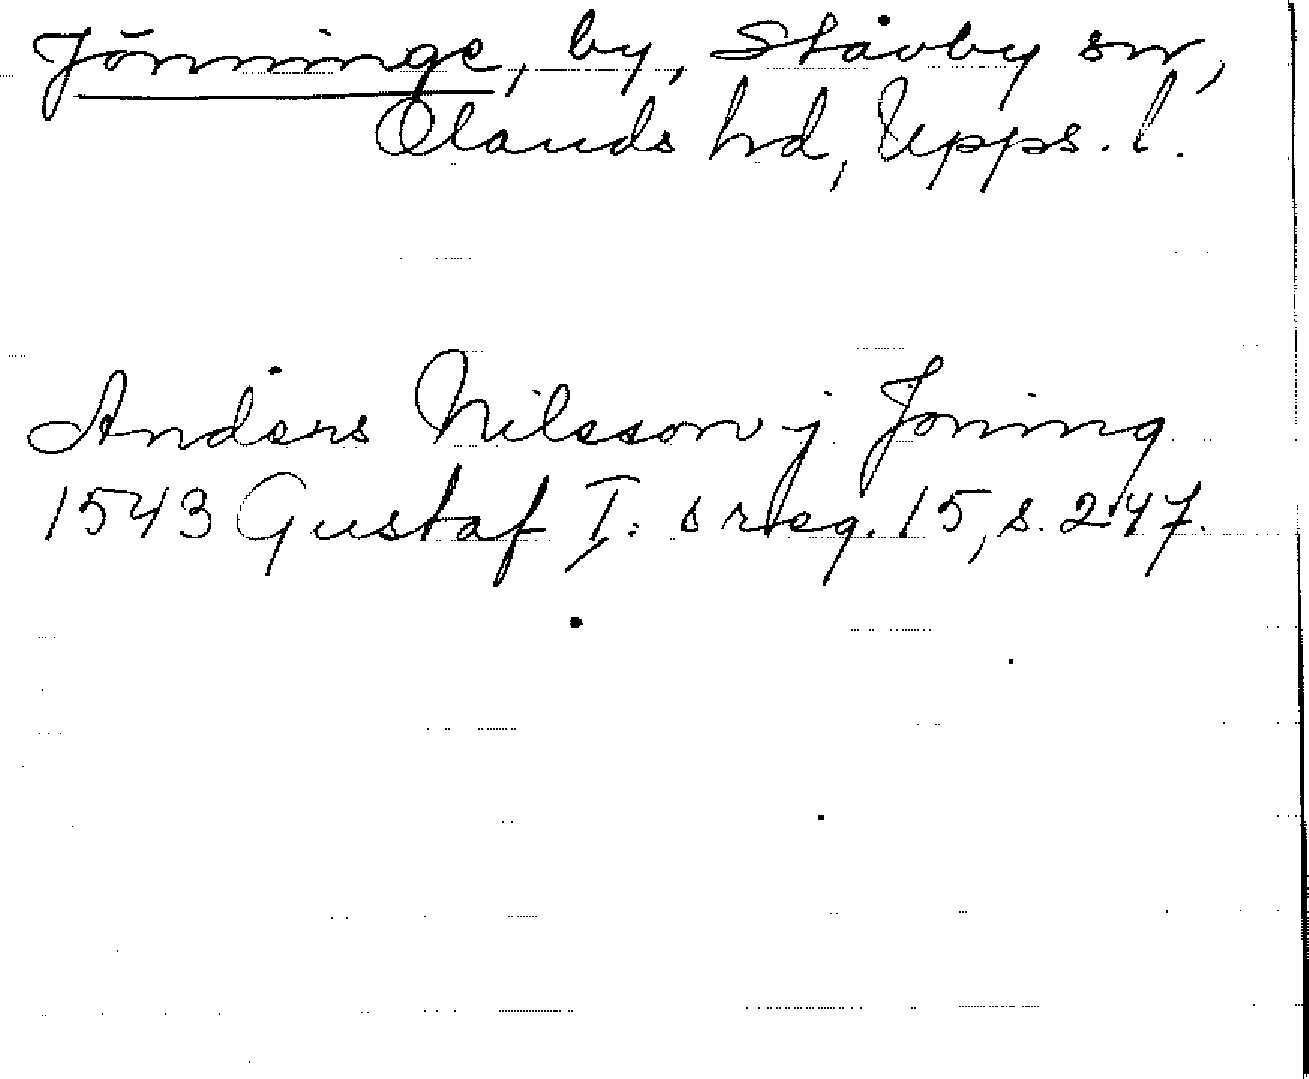 Jönninge, by, Stavby sn,
Olands hd, Upps. l.
Anders Nilsson j Joning
1543 Gustaf I:s reg. 15, s. 247.